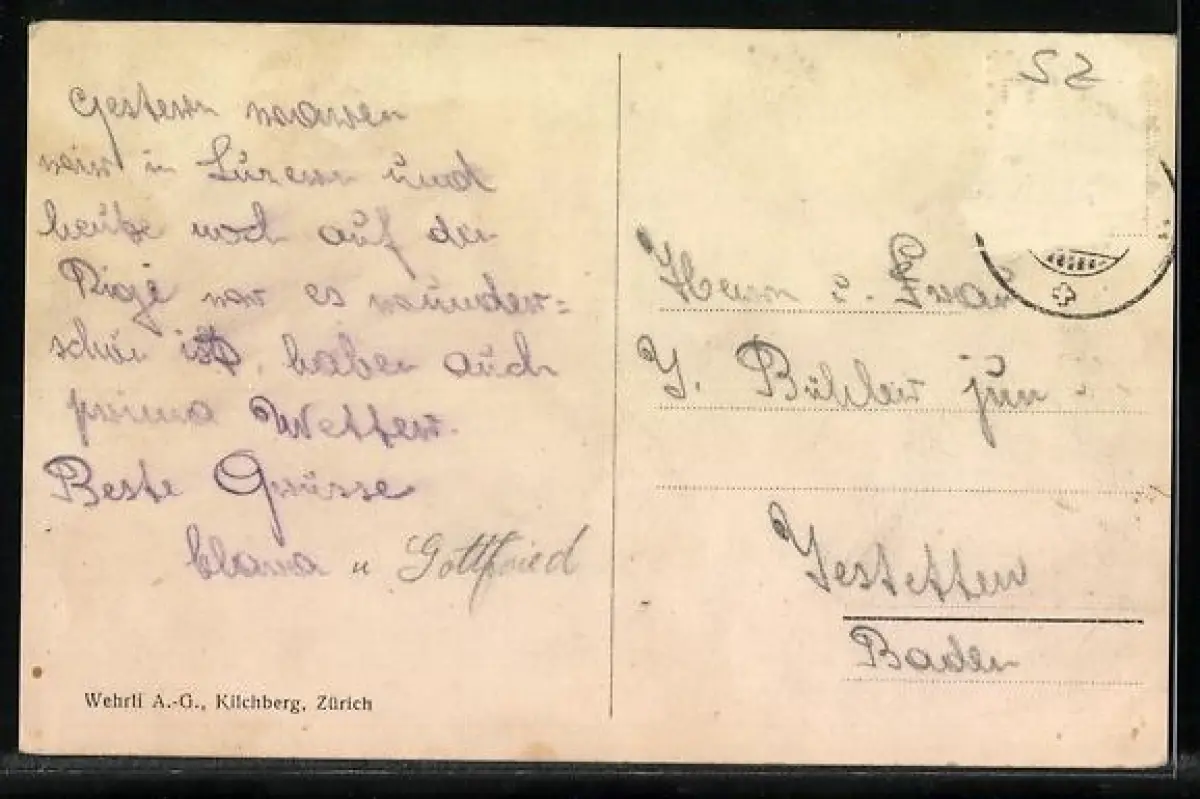 Gestern waren
wir in Luzern und
heute noch auf der
Rigi wo es wunder=
schön ist, haben auch
prima Wetter.
Beste Grüsse
Clara u Gottfried
Wehrli A.-G., Kilchberg, Zürich
Herrn u. Frau
J. Bühler jun
Jestetten
Baden